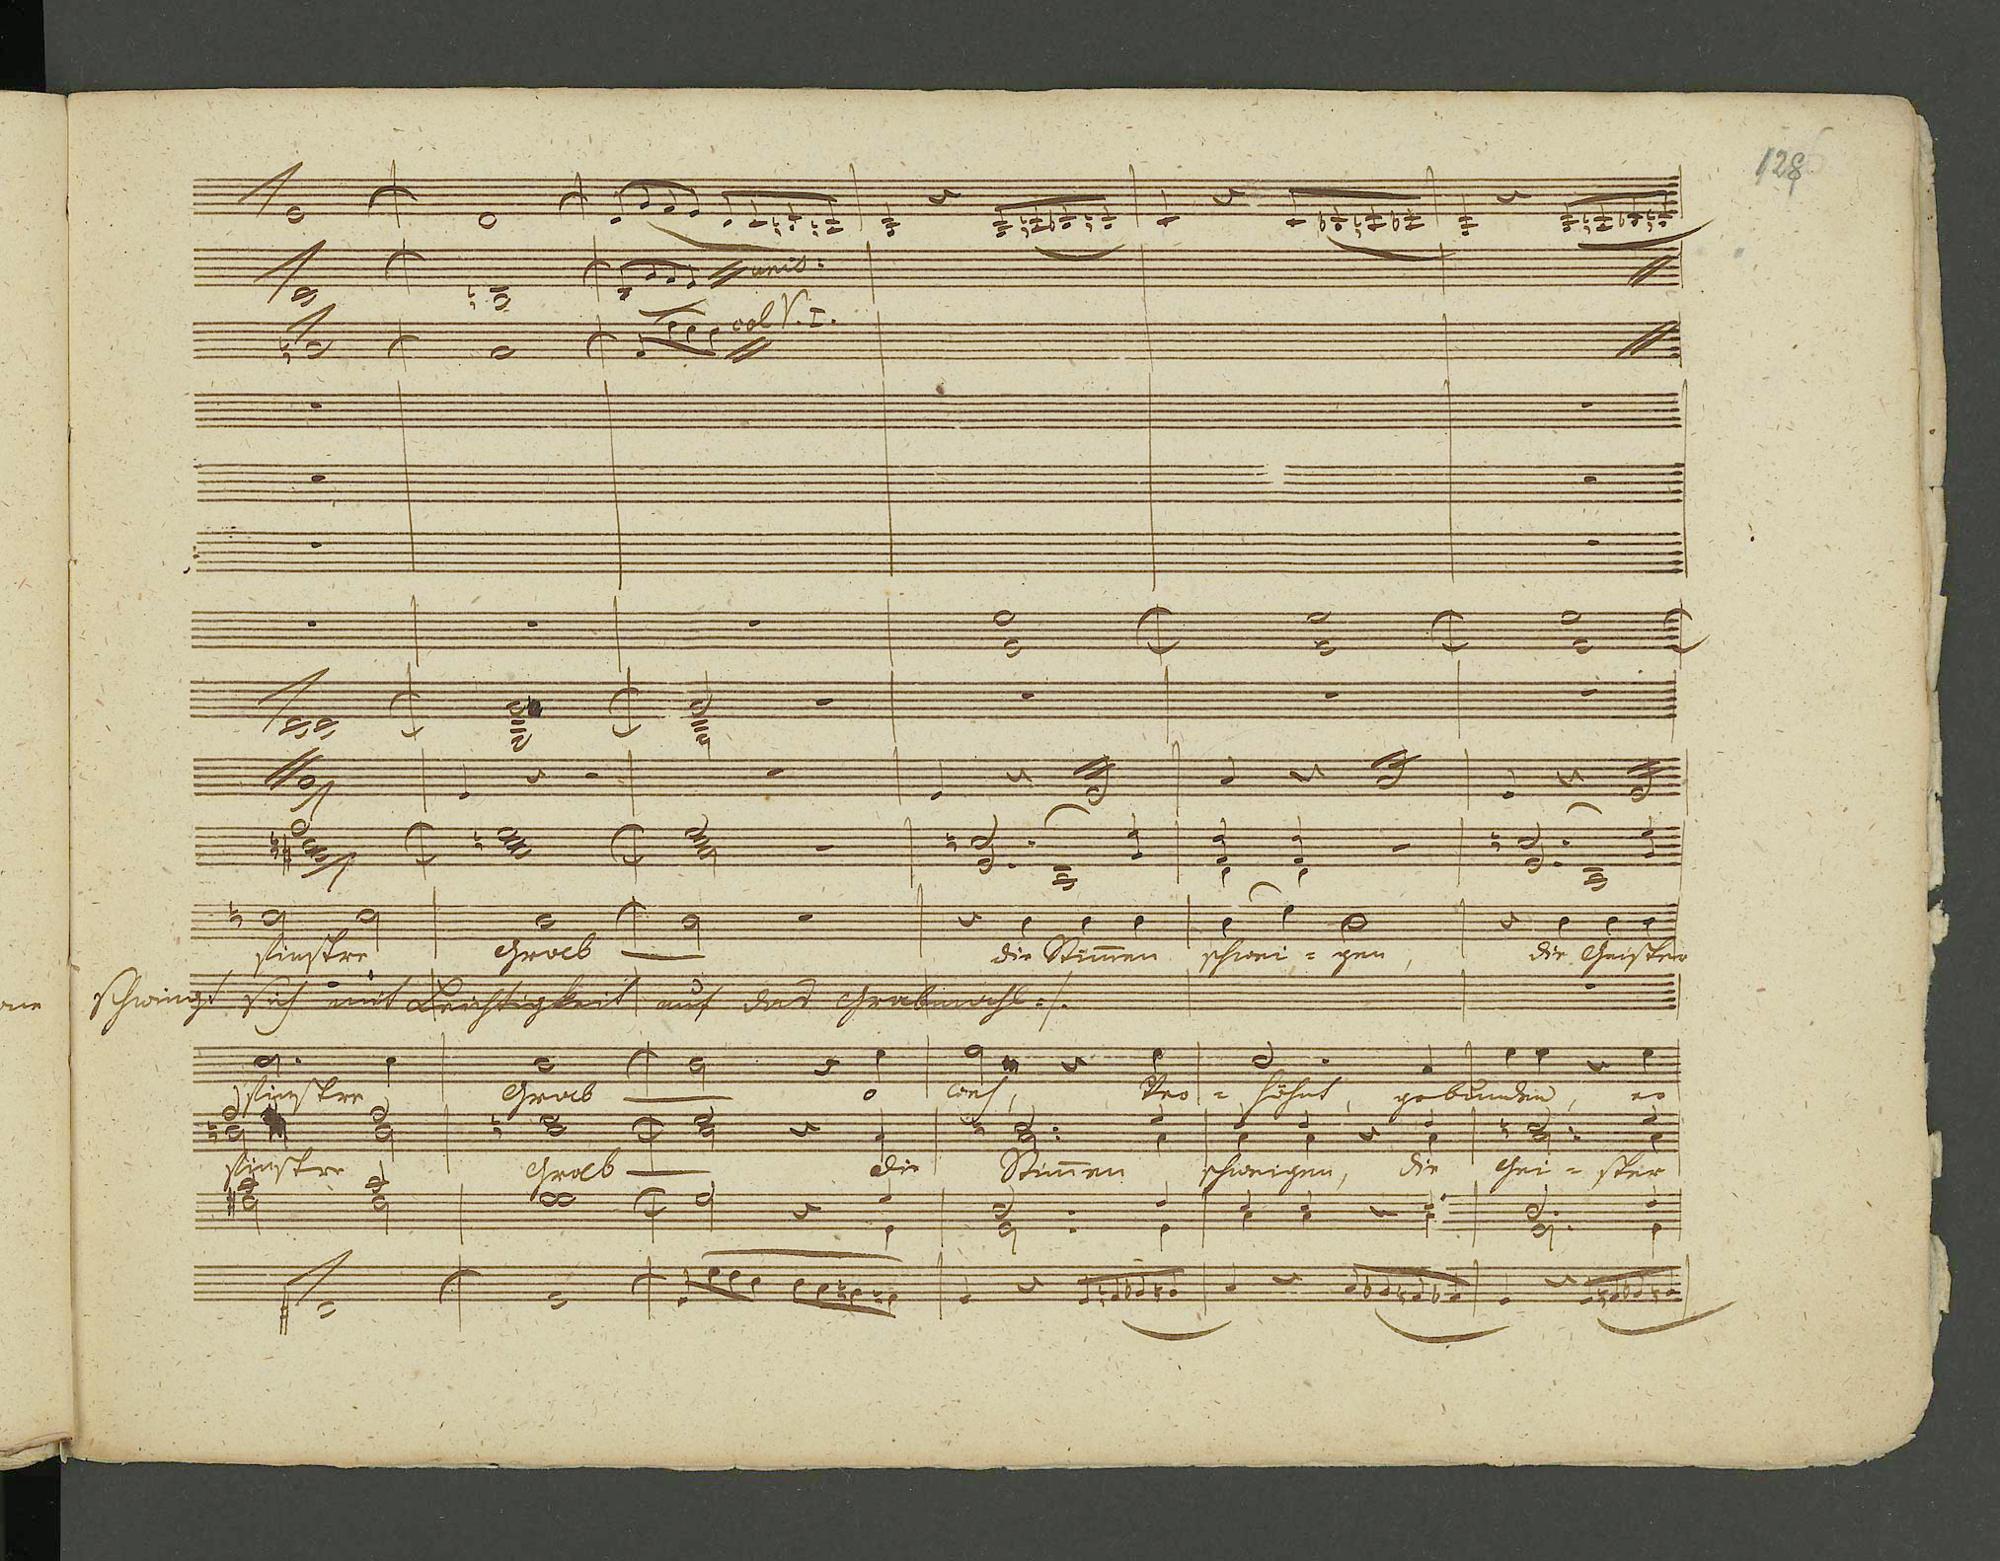 128
unis:
col V. I.
finstre Grab die Stim̄en schwei = gen, die Geister
schwingt sich mit Leichtigkeit auf das Grabmahl :/.
finstre Grab o weh, höhnt, gebunden,
finstre Grab die Stim̄en schweigen, die Gei = ster